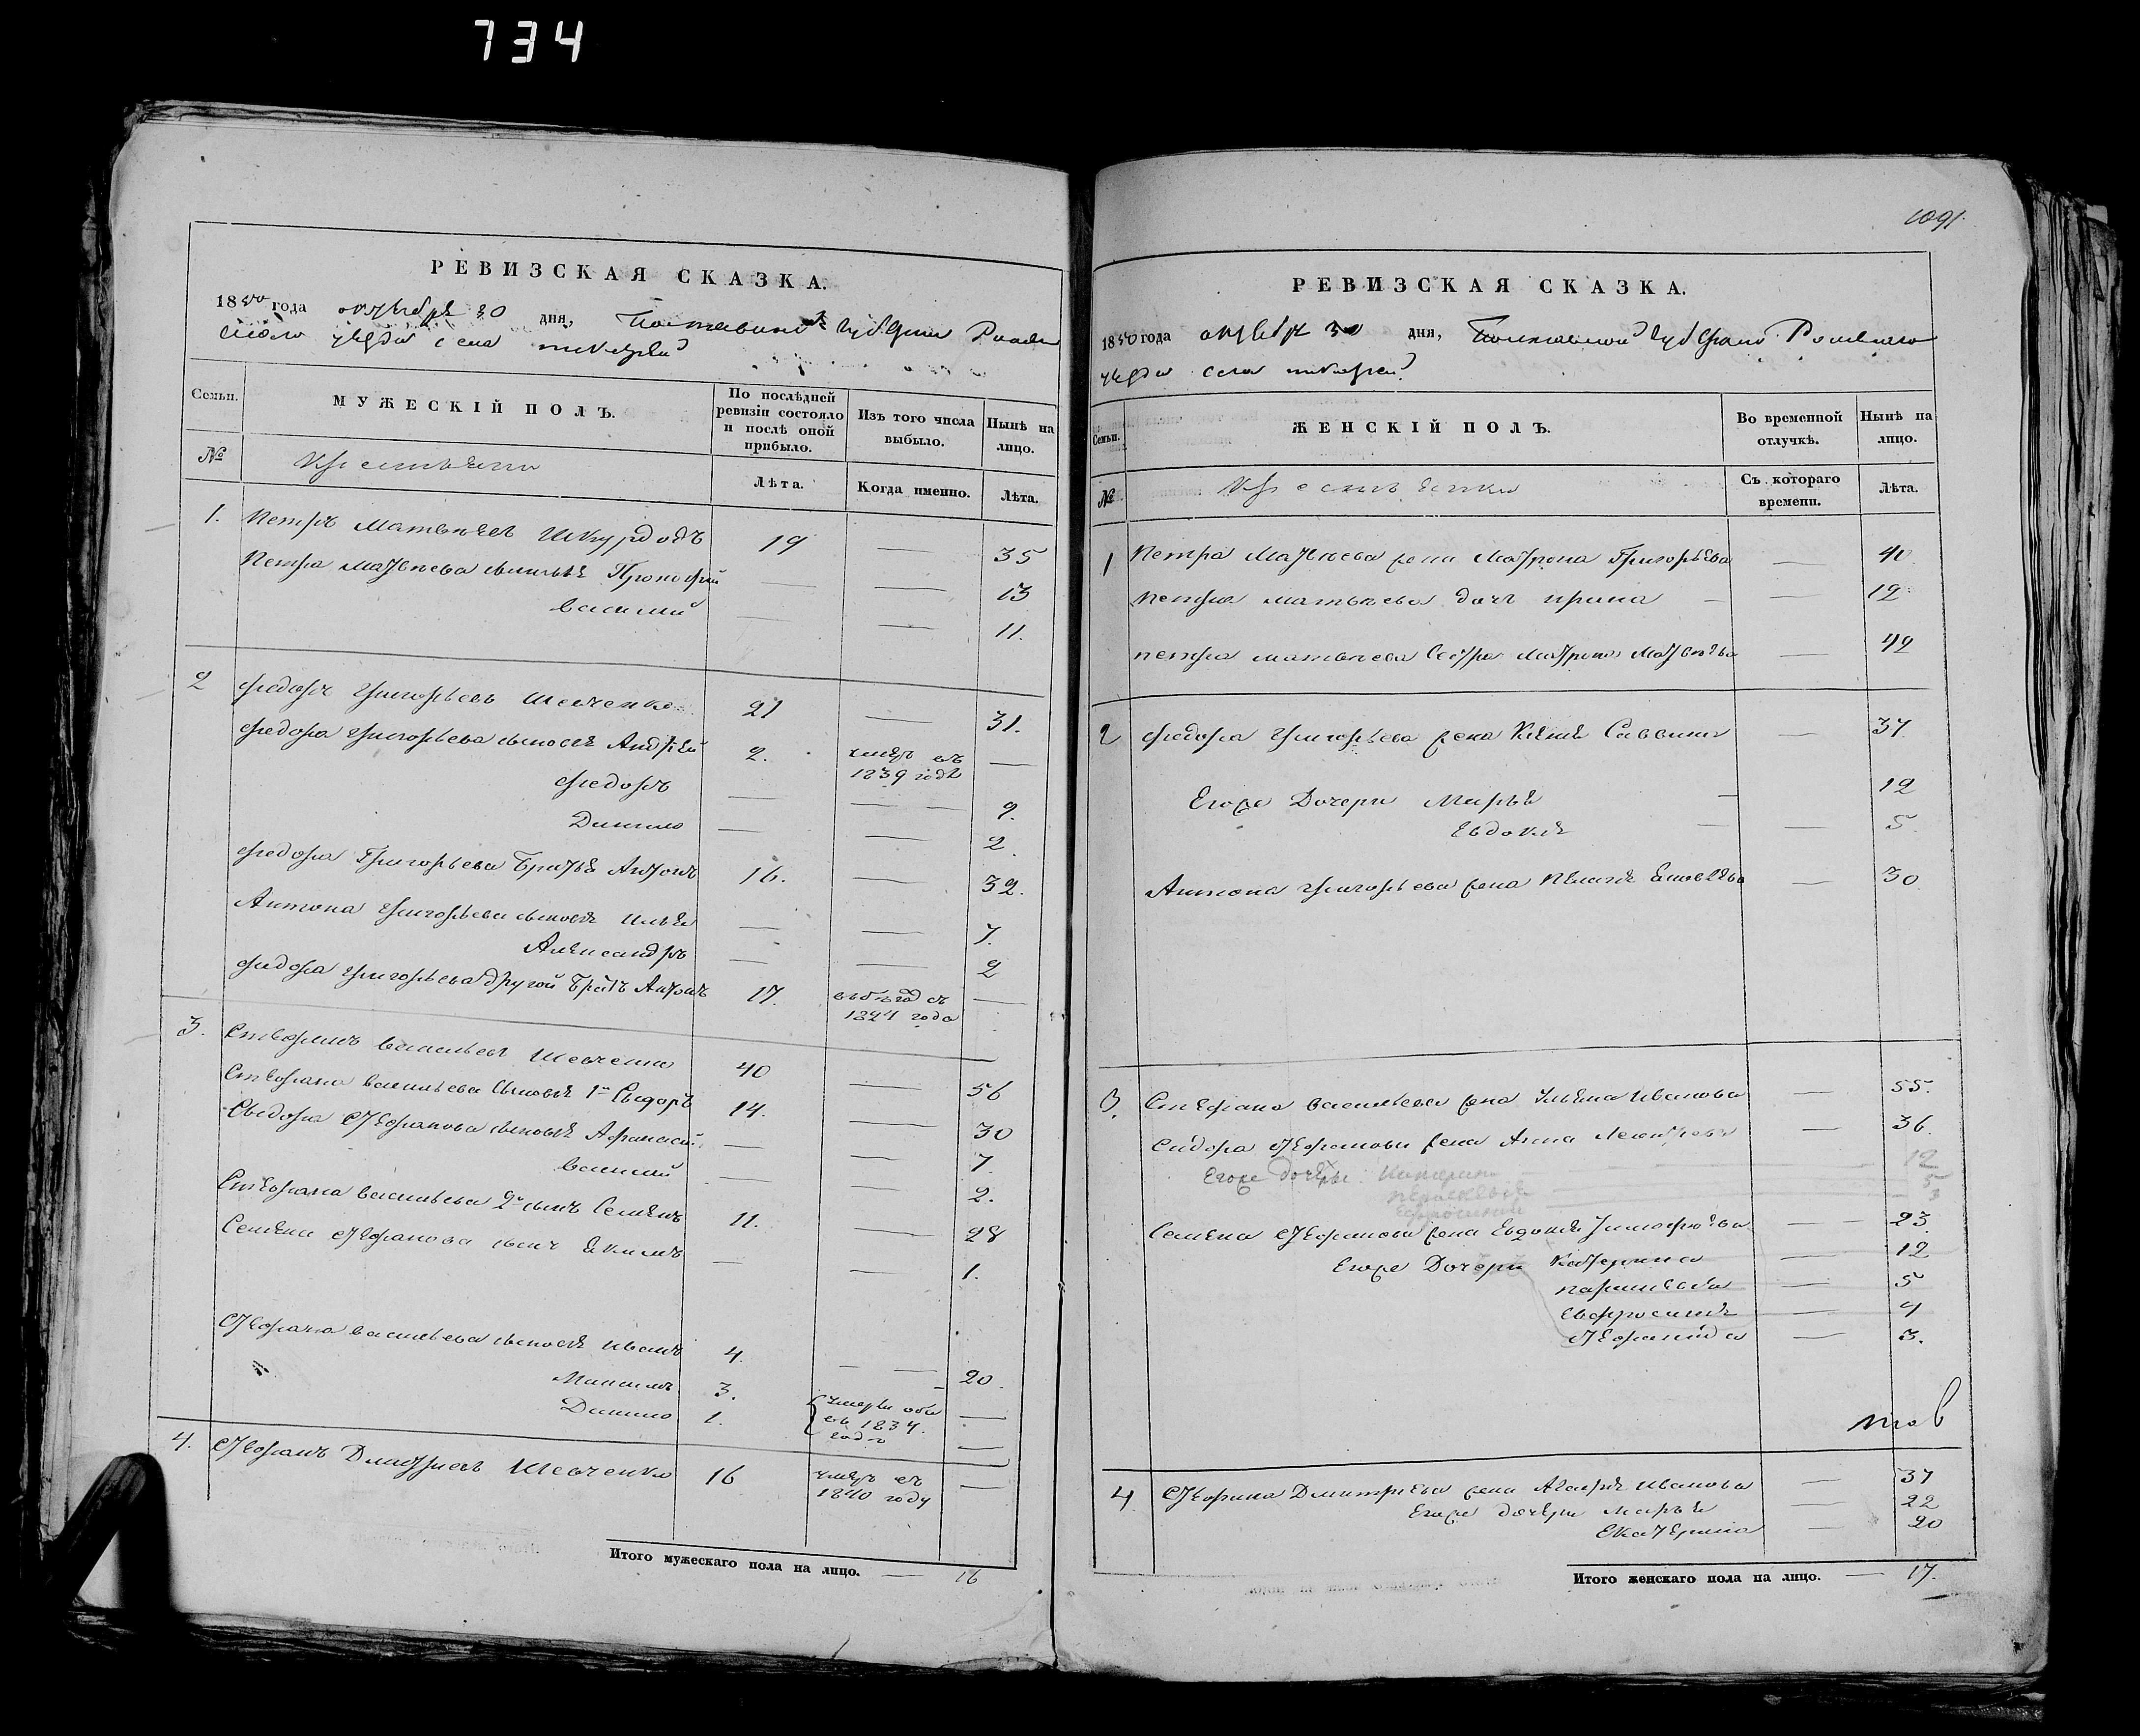 734
РЕВИЗСКАЯ СКАЗКА.
1850 года октября 30 дня, Полтавской губернии
уезда села
Семьи.
МУЖЕСКІЙ ПОЛЪ.
По послѣдней ревизіи состояло и послѣ оной прибыло.
Изъ того числа выбыло.
Нынѣ на лицо.
№
Лѣта.
Когда именно.
Лѣта.
1. Петръ Матвѣевъ Шкурдодъ 19 — 35
Петра Матвѣева сыновья Прокофій — — 13
Василий — — 11.
2 Федоръ Григорьевъ Шевченко 21 — 31.
Федора Григорьева сыновья Андрей 2. умеръ въ 1839 годѣ —
Федоръ — — 9.
Данило — — 2.
Федора Григорьева братья Антонъ 16. — 32.
Антона Григорьева сыновья Илья — — 7.
Александръ — — 2
Федора Григорьева другой братъ Антонъ 17. 
года —
3. Стефанъ Васильевъ Шевченко 40 — 56
Стефана Васильева сыновья 1й Сидоръ 14. — 30
Сидора Стефанова сыновья Афанасий — — 7
Василий — — 2.
Стефана Васильева 2й сынъ Семенъ 11. — 28
Семена Стефанова сынъ Якимъ — — 1.
Стефана Васильева сыновья Иванъ 4. — — 20.
Максимъ 3. —
Данило 1. умерли оба въ 1834. годѣ —
4. Стефанъ Дмитриевъ Шевченко 16 умеръ въ 1840 году —
Итого мужескаго пола на лицо. — 16
1091.
РЕВИЗСКАЯ СКАЗКА.
1850 года октября 30 дня, Полтавской губернии Роменского
уезда села
Семьи.
ЖЕНСКІЙ ПОЛЪ.
Во временной отлучкѣ.
Нынѣ на лицо.
№
Съ котораго времени.
Лѣта.
1 Петра Матвѣева жена Матрона Григорьева — 40
Петра Матвѣева дочь Ирина — — 12
Петра Матвѣева сестра Матрона Матвѣева — 42
2 Федора Григорьева жена Ксенія Саввина — 37.
Егоже дочери Марья — 12
Евдокия — — 5
Антона Григорьева жена Пелагея — 30
3. Стефана Васильева жена Ульяна Иванова — 55.
Сидора Стефанова жена Анна — 36.
Егоже дочеры: Катерина — 12
— 5
— 3
Семена Стефанова жена Евдокия Тимофеева — — 23
Егоже дочери Катерина — 12
— 5
Евфросиния — 4
Стефанида — 3.
4 Стефана Дмитриева жена Агафія Иванова — 37
Егоже дочери Марья — 22
Екатерина — 20
Итого женскаго пола на лицо. — 17.